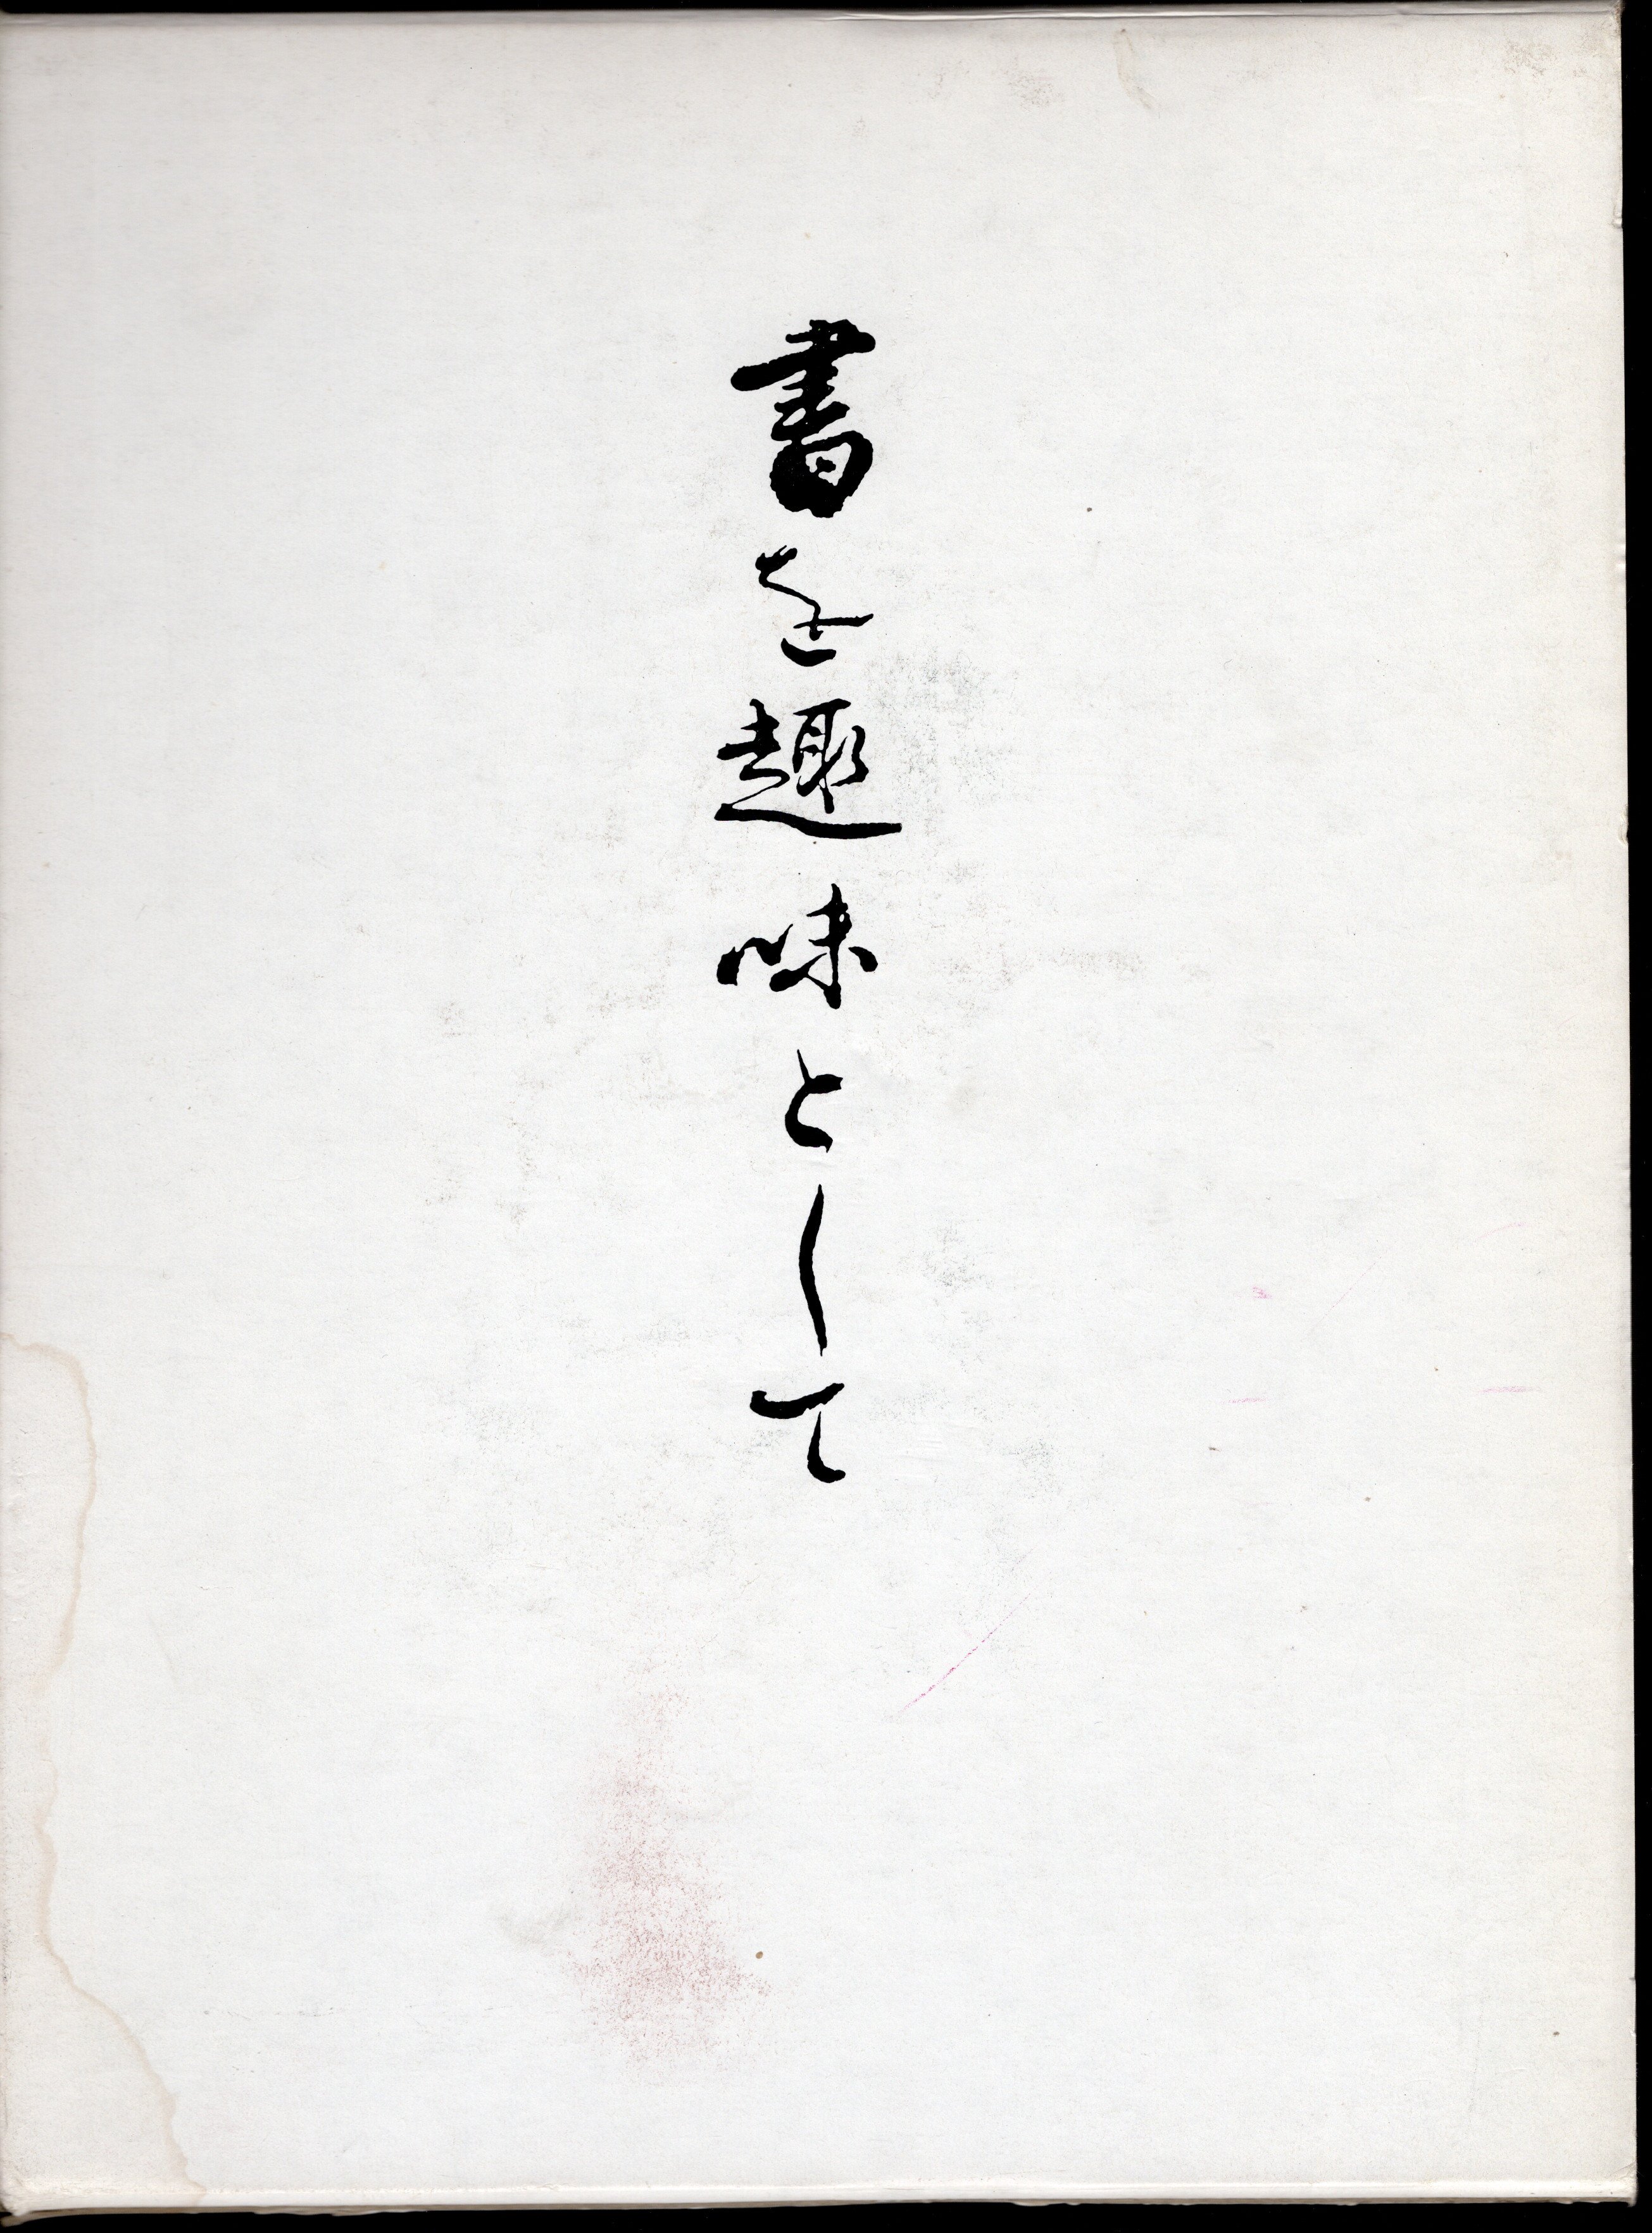 書を趣味として